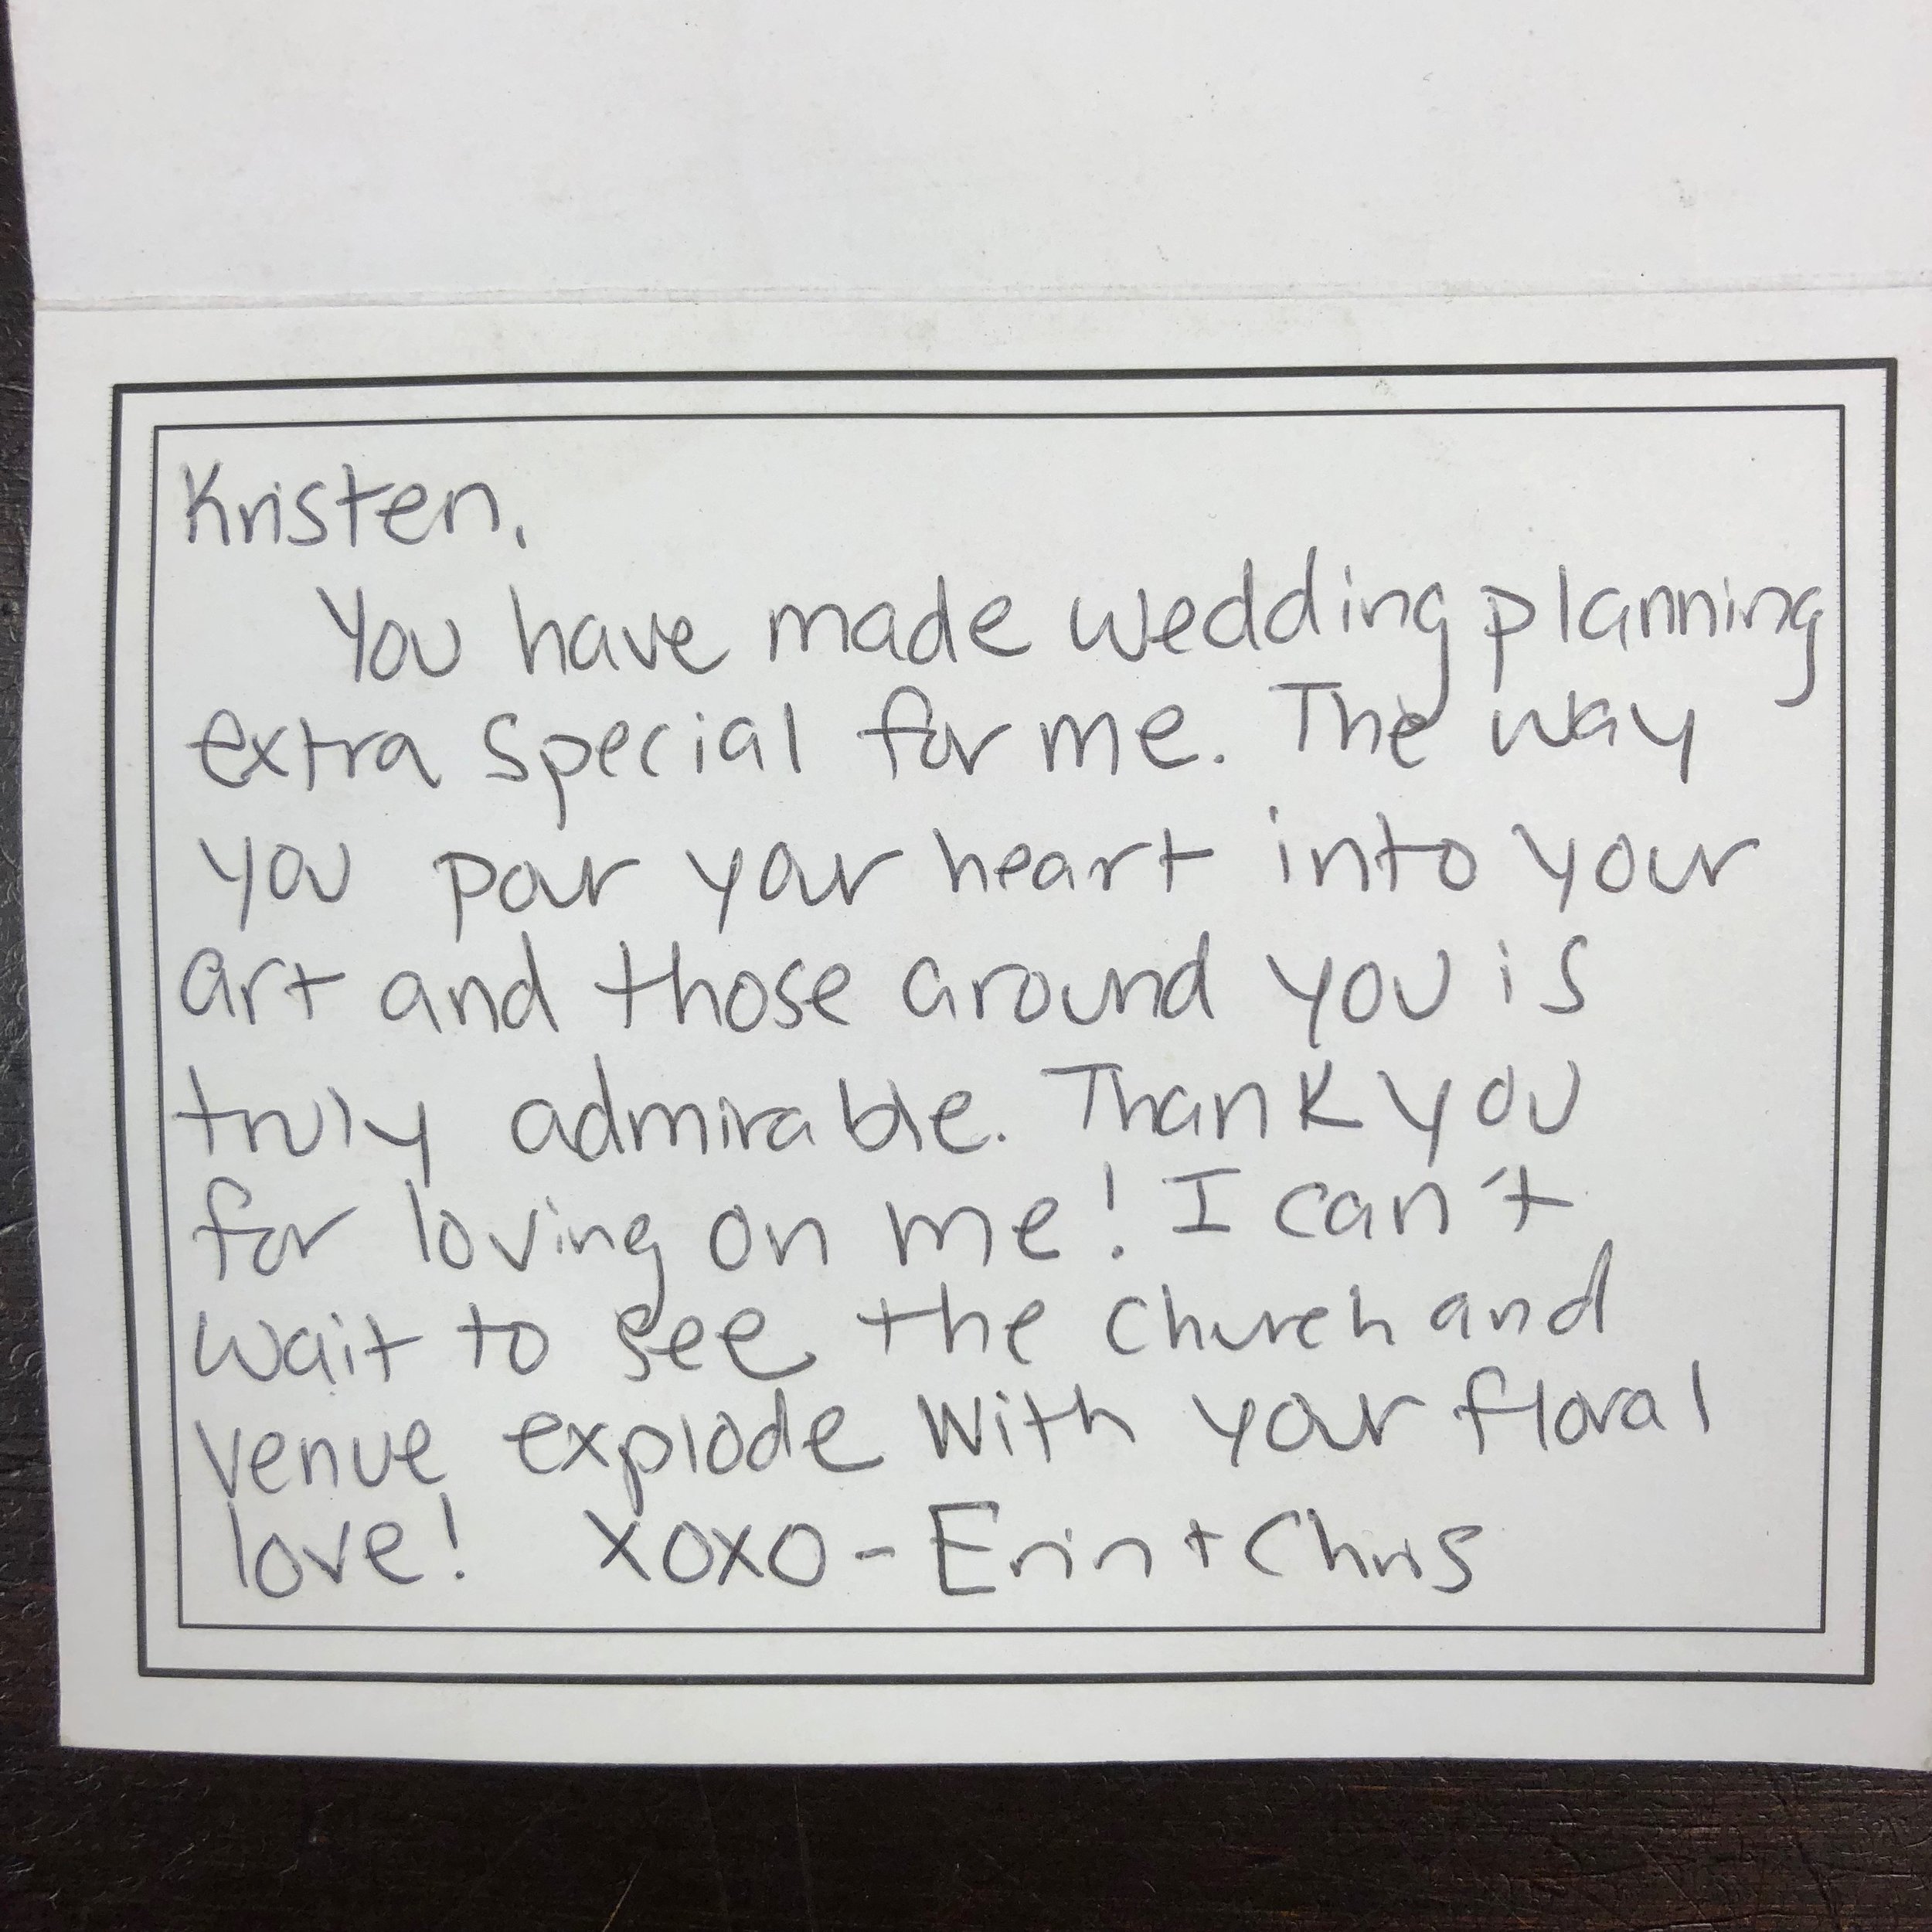 Kristen,
You have made wedding planning
extra special for me. The way
you pour your heart into your
art and those around you is
truly admirable. Thank you
for loving on me! I can't
wait to see the church and
venue explode with your floral
love! XOXO - Erin + Chris